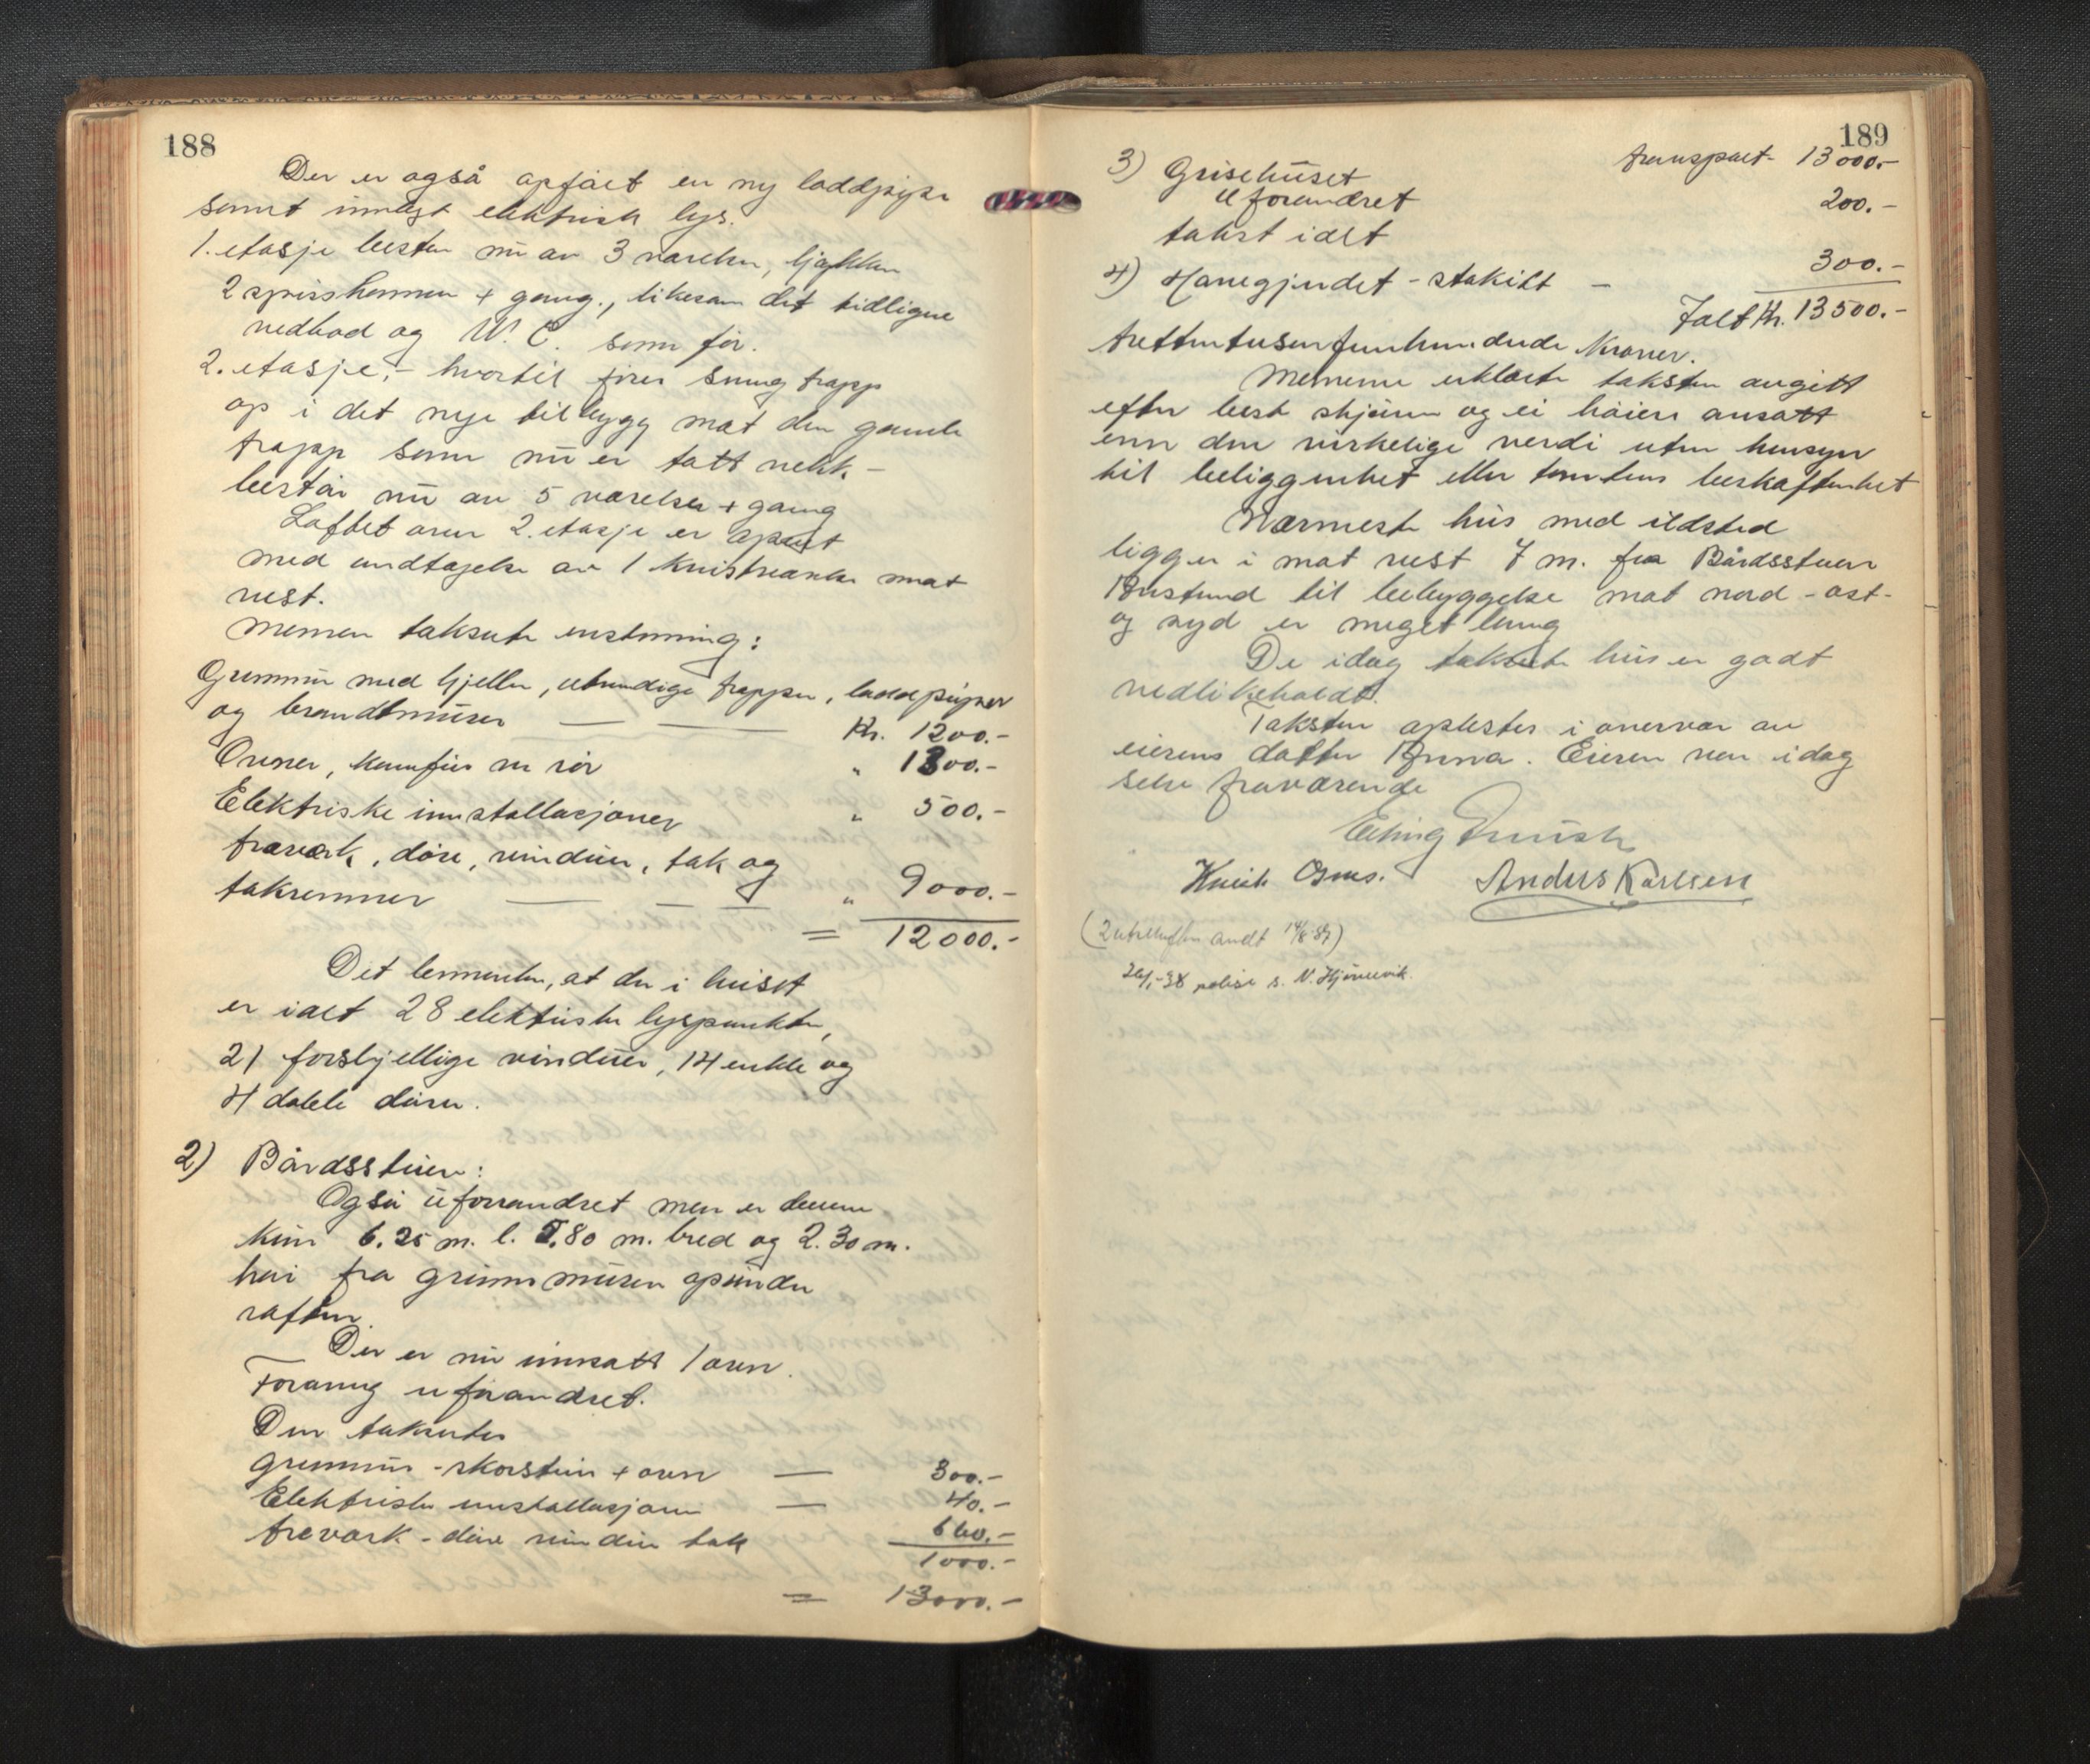 188
Der er også opført en ny loddpipe
samt innlagt elektrisk lys.
1. etasje består nu av 3 værelser, kjøkken
2 spisskammer + gang, likesom det tidligere
vedbod og W. C. som før.
2. etasje, - hvortil fører sving trapp
op i det nye tilbygg mot den gamle
trapp som nu er tatt vekk -
består nu av 5 værelser + gang
Loftet over 2. etasje er åpent
med undtagelse av 1 kvistværelse mot
vest.
Mennen takserte enstemmig:
Grunmur med kjeller, utvendige trapper, loddpiper
og brandtmurer — — Kr. 1200.-
Ovner, komfür m rör " 1300.-
Elektriske innstallasjoner " 500.-
träverk, döre, vinduer, tak og
takrenner — — — " 9000.-
= 12000.-
Det bemerkes, at der i huset
er ialt 28 elektriske lyspunkter,
21 forskjellige vinduer, 14 enkle og
4 doble dører.
2) Bårdsstuen:
Også uforrandret men er denne
kun 6.25 m. l. 5.80 m. bred og 2.30 m.
høi fra grunnmuren opunder
raften.
Der er nu innsatt 1 ovn.
Forøvrig uforandret.
Den takseres
Grunmur - skorstein + ovn — 300.-
Elektriske innstallasjon — 40.-
trevärk - döre vindu tak 660.-
1000.-
= 13000.-
189
transport 13000.-
3) Grisehuset
Uforandret 200.-
takst ialt
4) Hønegjerdet - stakitt - 300.-
Ialt Kr. 13500.-
trettentusenfemhundrede Kroner.
Mennene erklærte taksten avgitt
efter best skjønn og ei høiere ansatt
enn den virkelige verdi uten hensyn
til beliggenhet eller tomtens beskaffenhet
Nærmeste hus med ildsted
ligger i mot vest 7 m. fra Bårdsstuen
Avstand til bebyggelse mot nord - ost -
og syd er meget lang
De idag takserte hus er godt
vedlikeholdt.
Taksten oplestes i overvær av
eierens datter Anna. Eieren var idag
selv fraværende
Anders Karlsen
(2 utskrifter sendt 14/8 37)